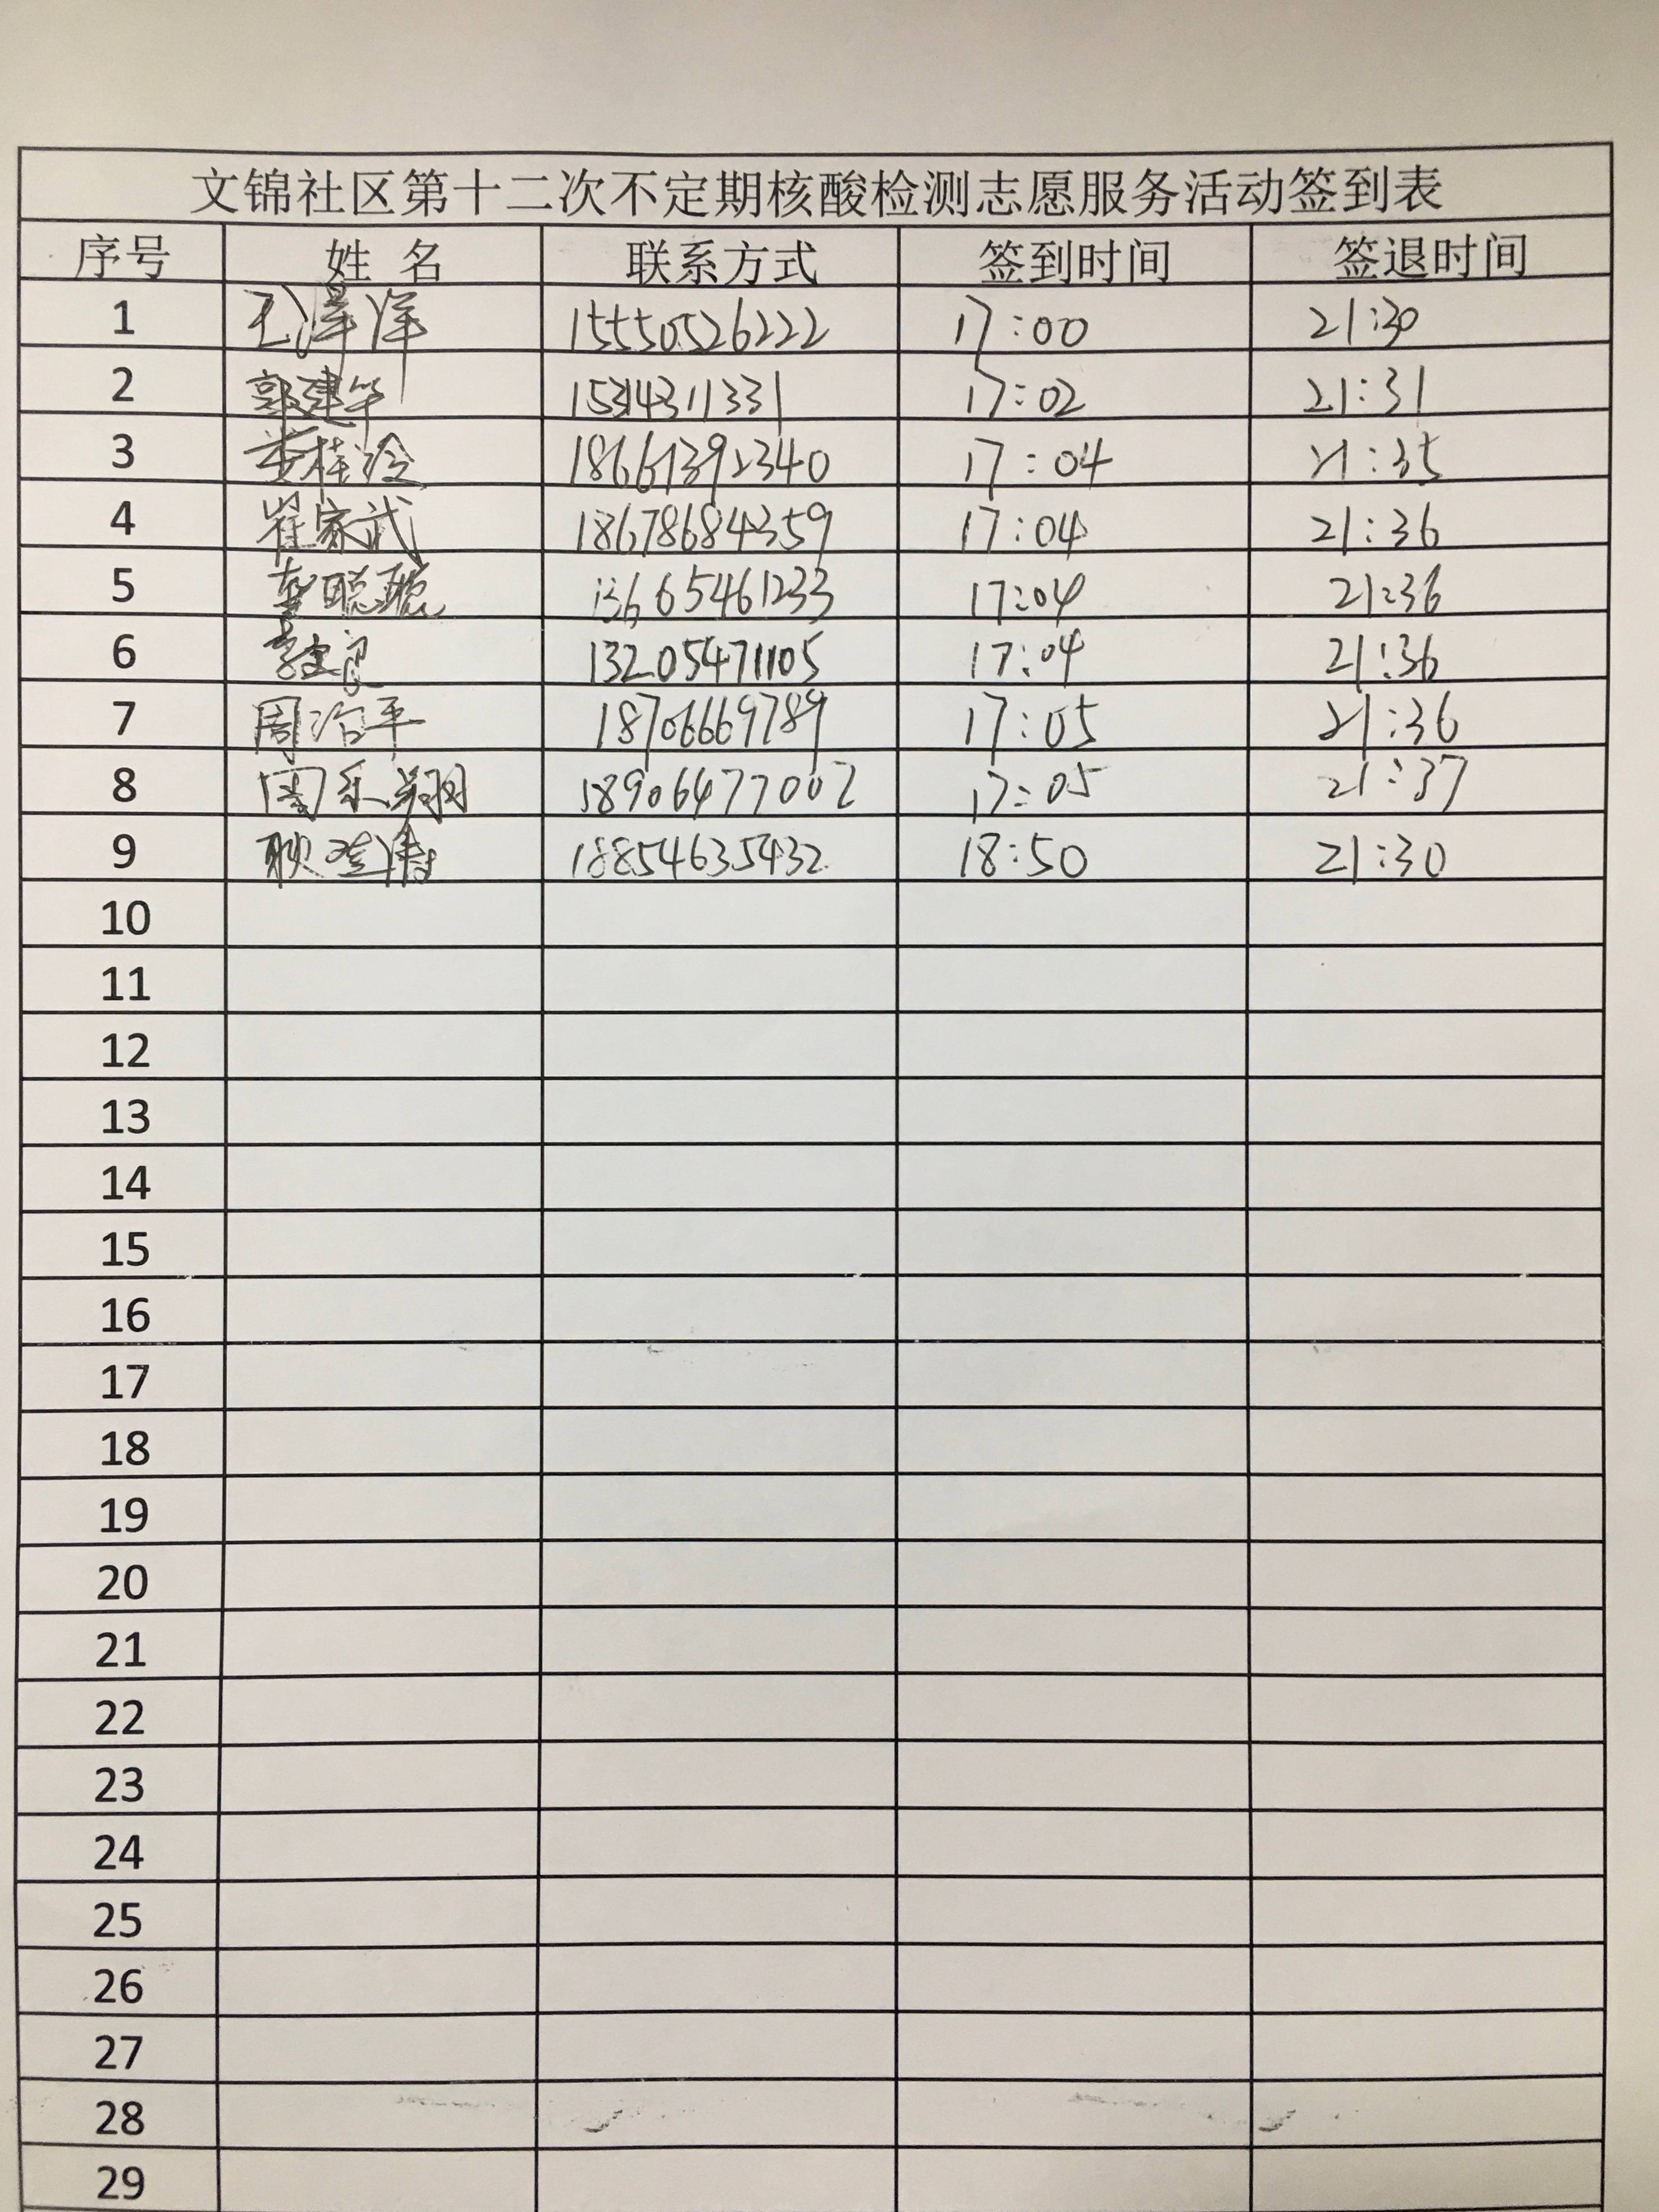 文锦社区第十二次不定期核酸检测志愿服务活动签到表
序号 姓 名 联系方式 签到时间 签退时间
1 王泽洋 15550526222 17:00 21:30
2 郭建华 15314311331 17:02 21:31
3 黄桂玲 18661392340 17:04 21:35
4 崔家武 18678684359 17:04 21:36
5 聪聪 13665461233 17:04 21:36
6 李建良 13205471105 17:04 21:36
7 周治平 18706669789 17:05 21:36
8 周乐翔 18906477002 17:05 21:37
9 耿 18854635432 18:50 21:30
10
11
12
13
14
15
16
17
18
19
20
21
22
23
24
25
26
27
28
29